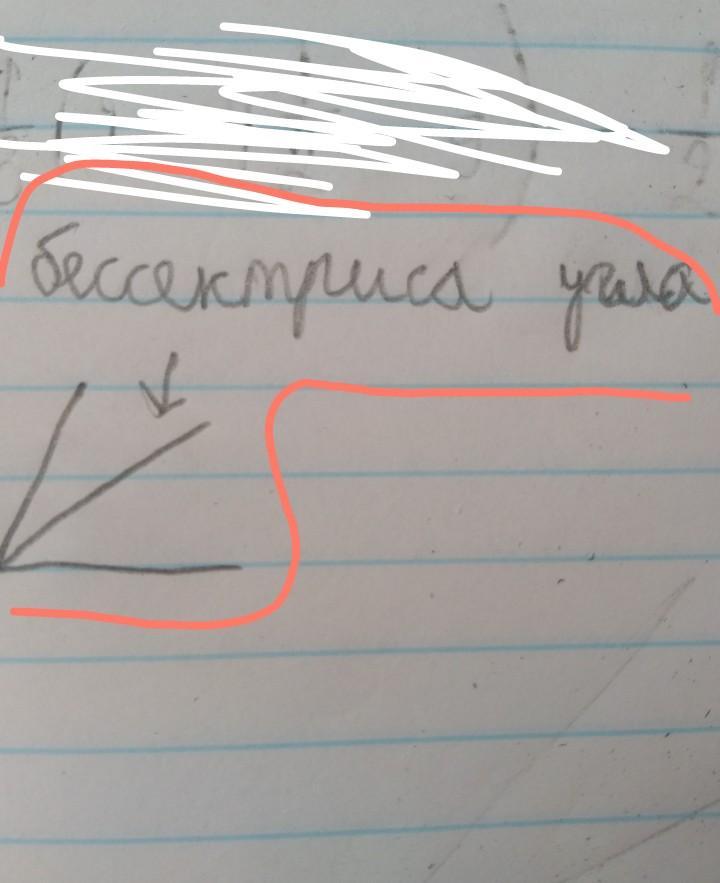 бессектриса угла